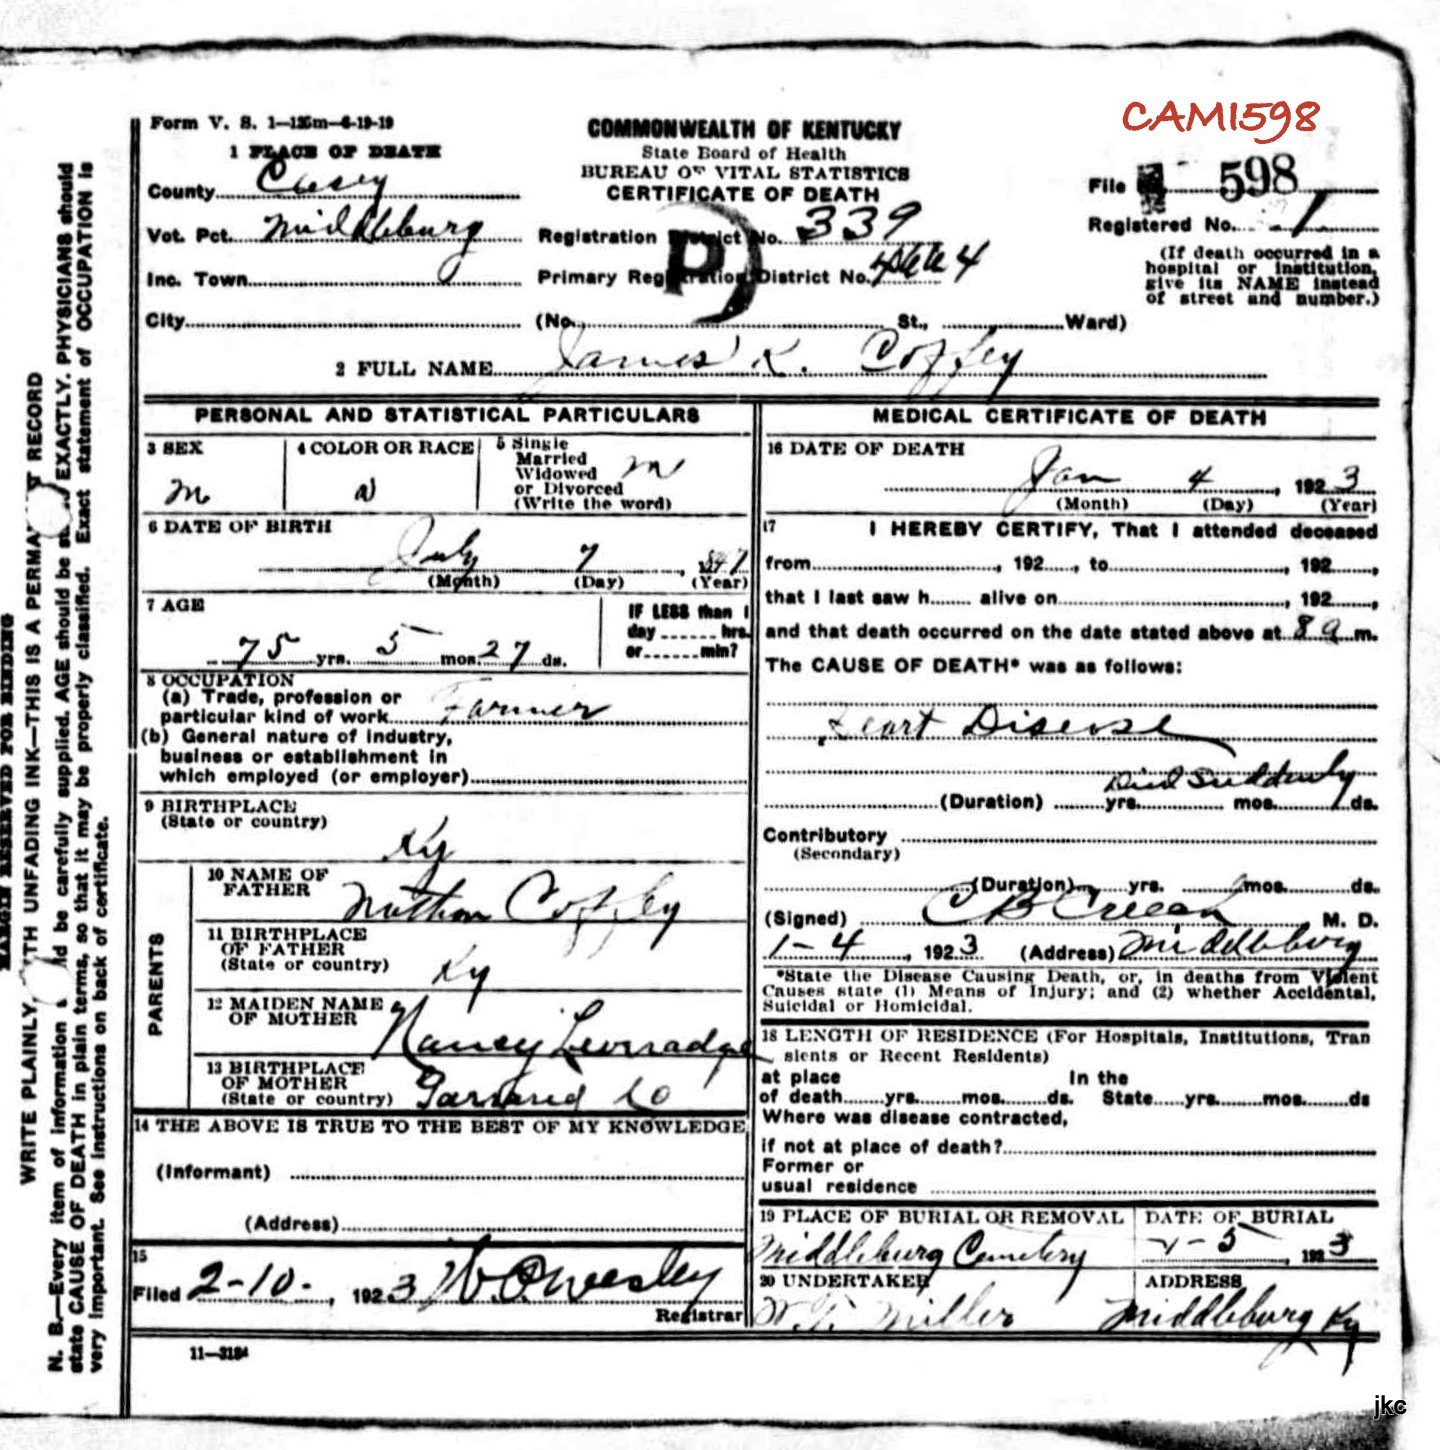 CAM1598
Form V. S. 1—125m—6-19-19
COMMONWEALTH OF KENTUCKY
State Board of Health
BUREAU OF VITAL STATISTICS
CERTIFICATE OF DEATH
1 PLACE OF DEATH
County Casey
Vot. Pct. Middleburg
Inc. Town
City
File 598
Registered No. 1
Registration District No. 339
Primary Registration District No.
P
(No. St., Ward)
(If death occurred in a
hospital or institution,
give its NAME instead
of street and number.)
2 FULL NAME James K. Coffey
PERSONAL AND STATISTICAL PARTICULARS
3 SEX
m
4 COLOR OR RACE
w
5 Single
Married
Widowed
or Divorced
(Write the word)
m
6 DATE OF BIRTH
July 7, 1847
(Month) (Day) (Year)
7 AGE
75 yrs. 5 mos. 27 ds.
IF LESS than 1
day hrs.
or min?
8 OCCUPATION
(a) Trade, profession or
particular kind of work Farmer
(b) General nature of industry,
business or establishment in
which employed (or employer)
9 BIRTHPLACE
(State or country)
Ky
PARENTS
10 NAME OF
FATHER
Nathan Coffey
11 BIRTHPLACE
OF FATHER
(State or country)
Ky
12 MAIDEN NAME
OF MOTHER
Nancy Leveradge
13 BIRTHPLACE
OF MOTHER
(State or country) Garrard Co
14 THE ABOVE IS TRUE TO THE BEST OF MY KNOWLEDGE
(Informant)
(Address)
15
Filed 2-10-, 1923 W. O. Weesley
Registrar
11—3184
MEDICAL CERTIFICATE OF DEATH
16 DATE OF DEATH
Jan 4, 1923
(Month) (Day) (Year)
17 I HEREBY CERTIFY, That I attended deceased
from , 192 , to , 192 ,
that I last saw h alive on , 192 ,
and that death occurred on the date stated above at 8 a m.
The CAUSE OF DEATH* was as follows:
Heart Disease
Died Suddenly
(Duration) yrs. mos. ds.
Contributory
(Secondary)
(Duration) yrs. mos. ds.
(Signed) C B Creech, M. D.
1-4, 1923 (Address) Middleburg
*State the Disease Causing Death, or, in deaths from Violent
Causes state (1) Means of Injury; and (2) whether Accidental,
Suicidal or Homicidal.
18 LENGTH OF RESIDENCE (For Hospitals, Institutions, Tran
sients or Recent Residents)
at place In the
of death yrs. mos. ds. State yrs. mos. ds
Where was disease contracted,
if not at place of death?
Former or
usual residence
19 PLACE OF BURIAL OR REMOVAL
Middleburg Cemetery
DATE OF BURIAL
1-5, 1923
20 UNDERTAKER
W. T. Miller
ADDRESS
Middleburg Ky
MARGIN RESERVED FOR BINDING
WRITE PLAINLY, WITH UNFADING INK—THIS IS A PERMANENT RECORD
N. B.—Every item of information should be carefully supplied. AGE should be stated EXACTLY. PHYSICIANS should
state CAUSE OF DEATH in plain terms, so that it may be properly classified. Exact statement of OCCUPATION is
very important. See instructions on back of certificate.
jkc